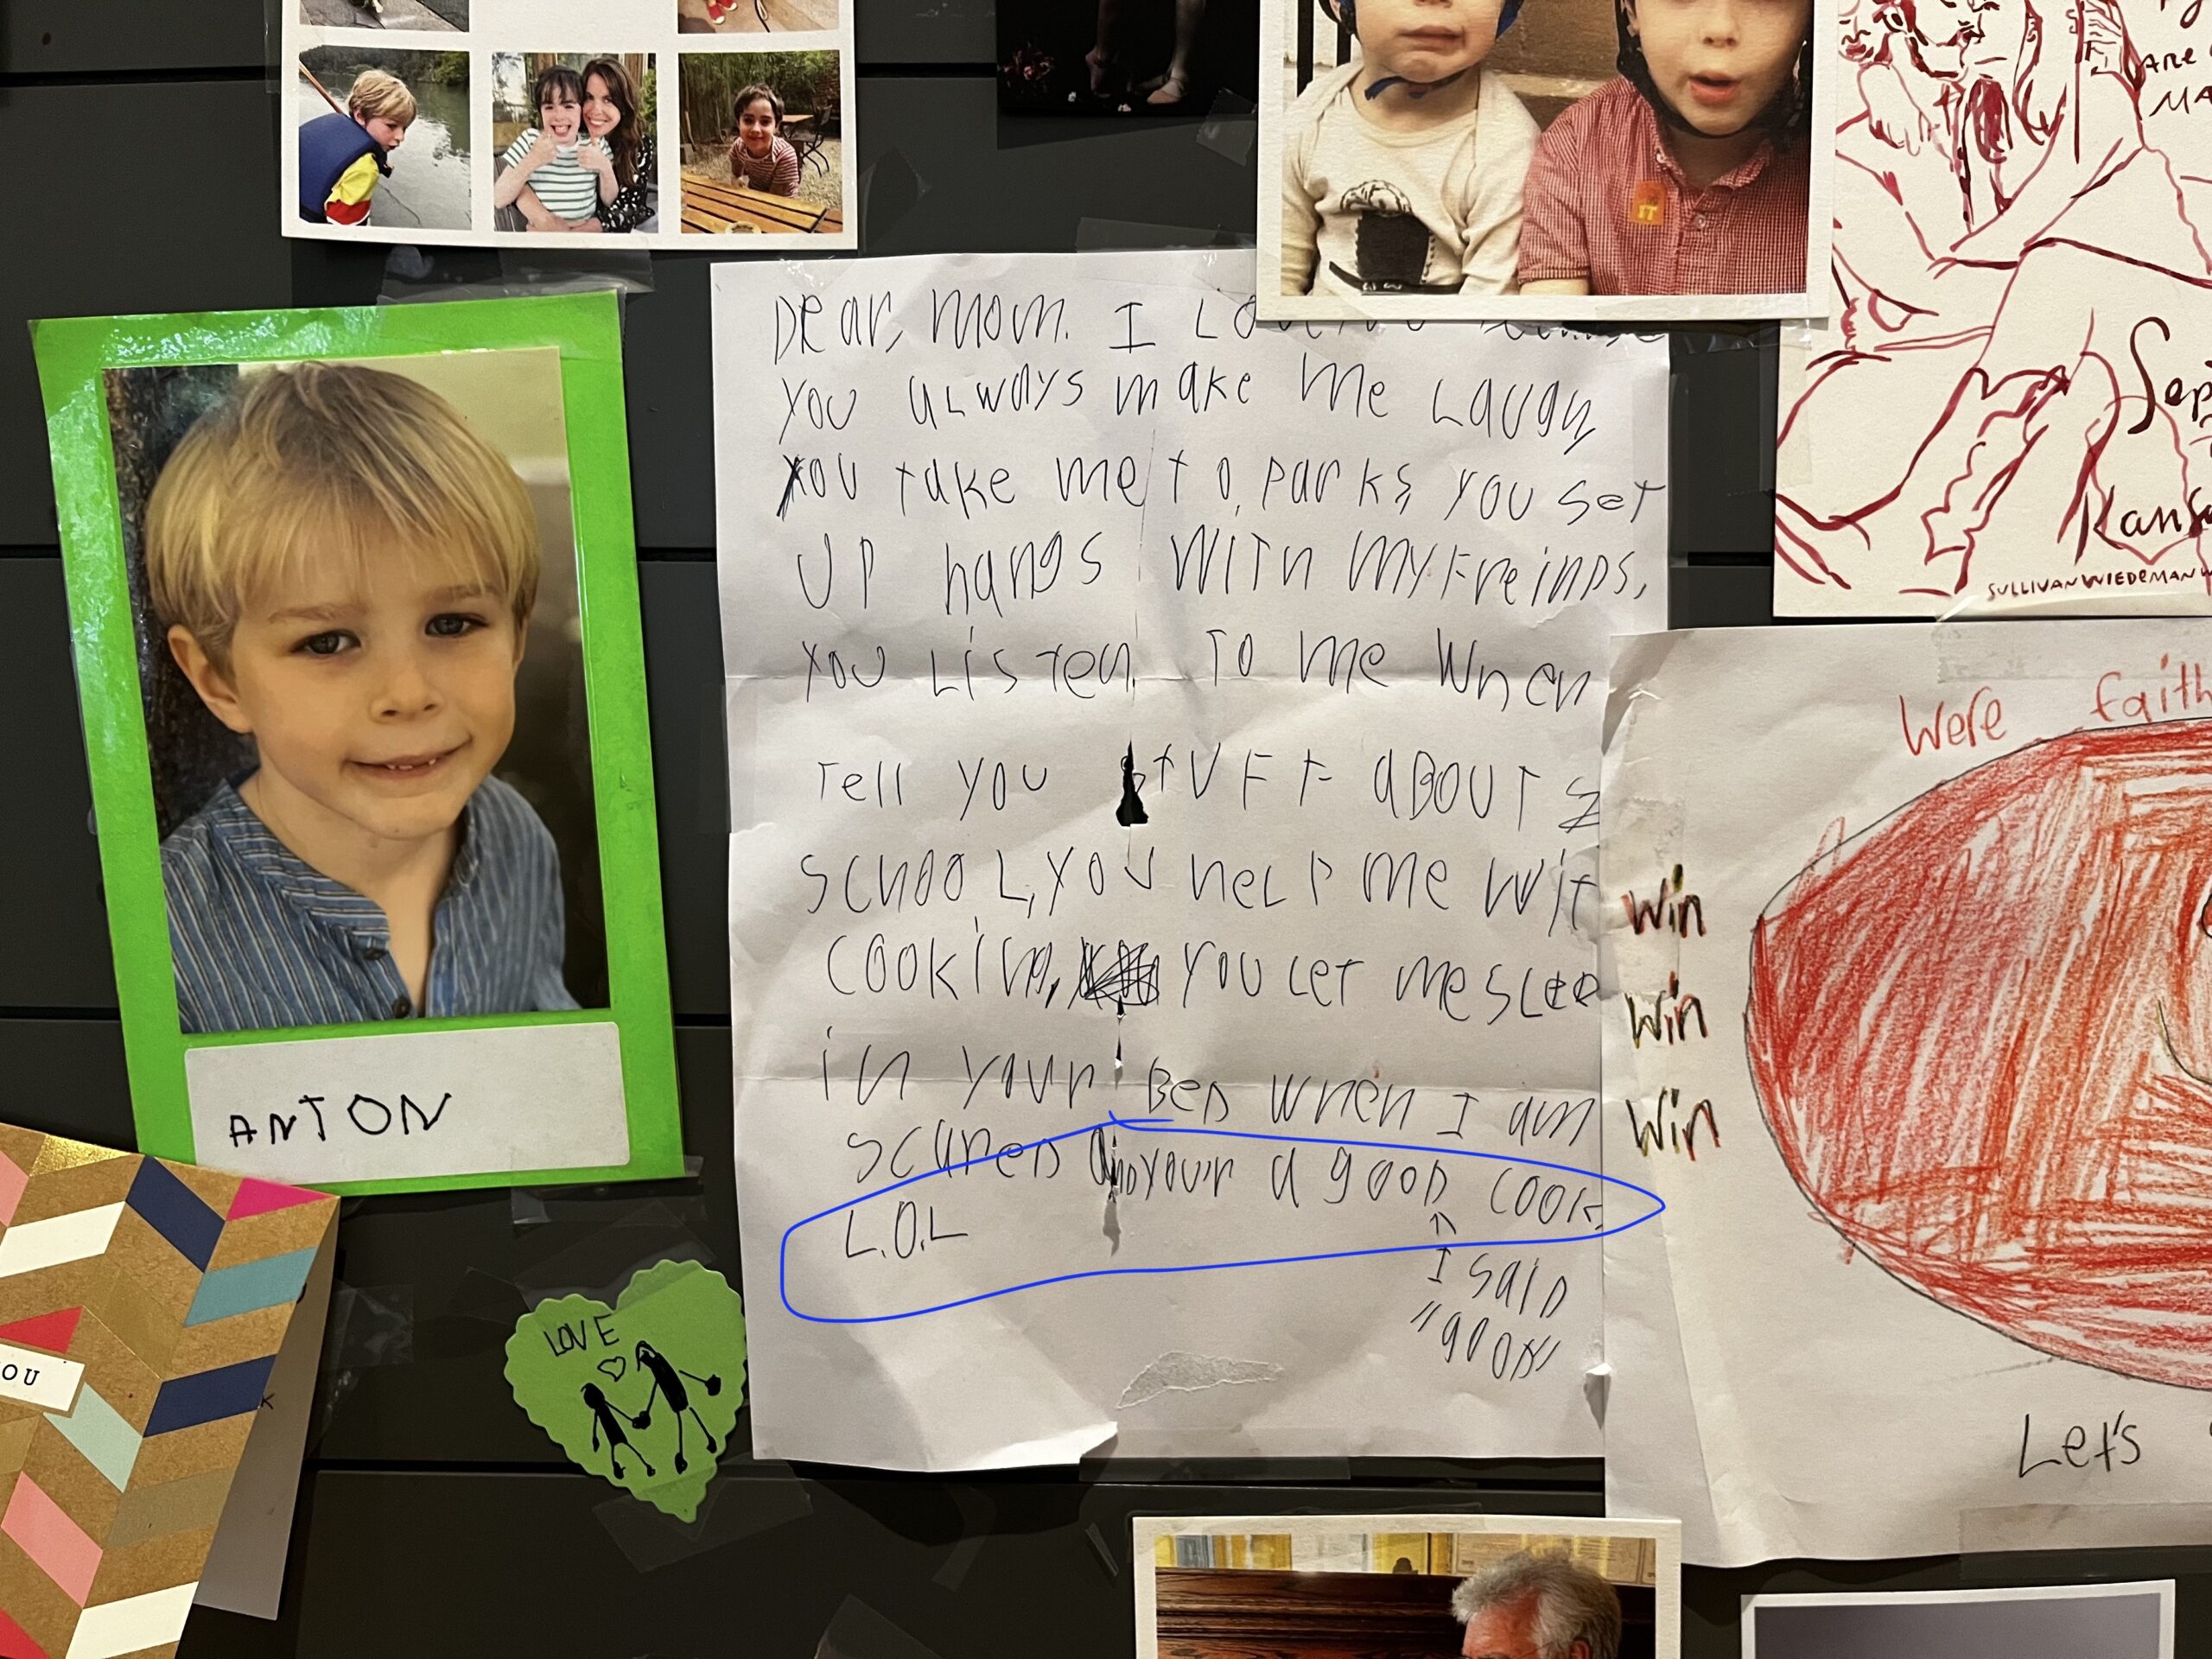 Dear, mom. I
you always make me Laugh
you take me to parks, you set
up hangs with my Freinds,
you Listen to me when
Tell you stuff about
school, you help me wit
cooking, you let me slee
in your Bed when I am
scared and your a good cook,
L.O.L
^
I said
"good"
ANTON
LOVE
OU
K
IT
ARE
MA
Sep
Kansa
SULLIVAN WIEDEMAN W
Were faith
Win
Win
Win
Let's